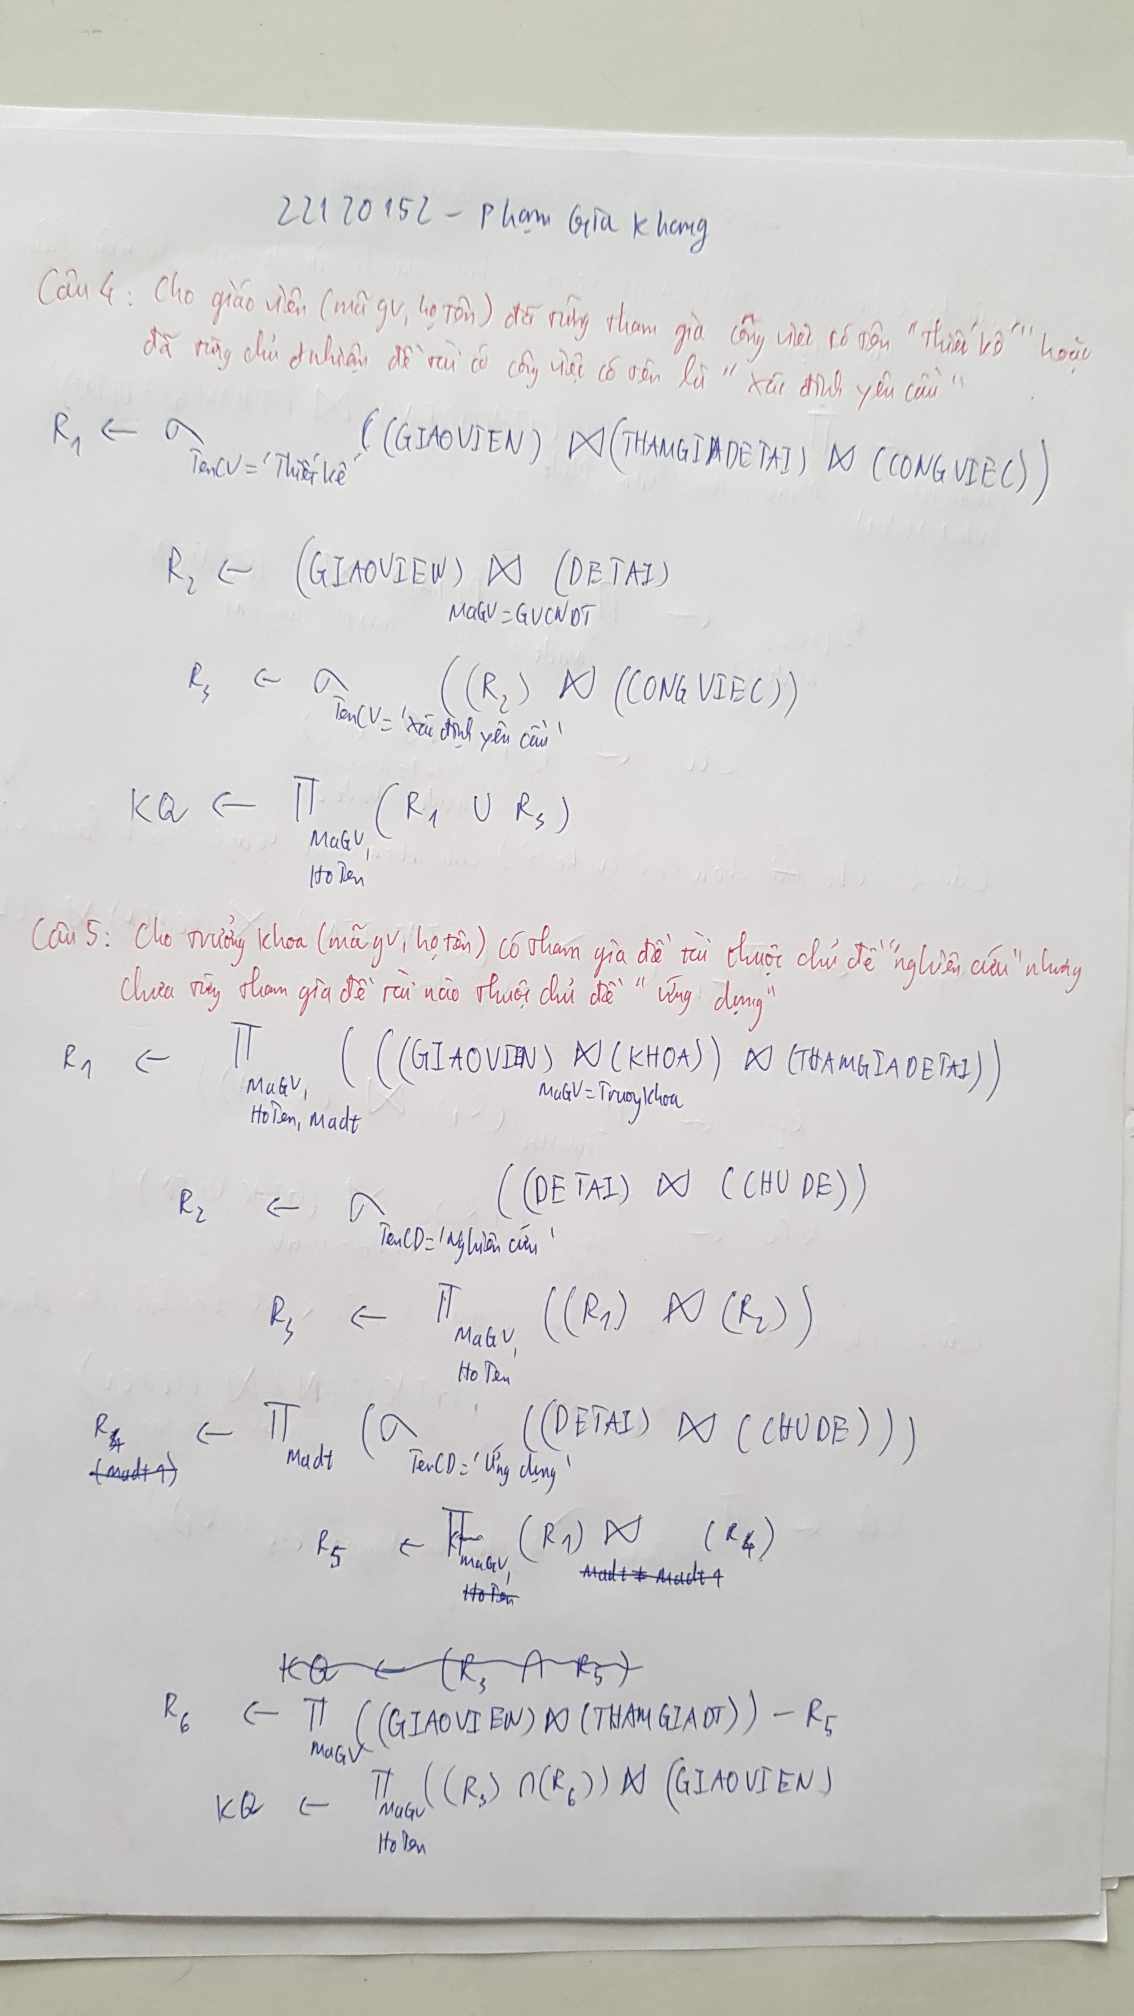 22120152 - Phạm Gia Khang
Câu 4: Cho giáo viên (mã gv, họ tên) đã từng tham gia công việc có tên "Thiết kế" hoặc
đã từng chủ nhiệm đề tài có công việc có tên là "xác định yêu cầu"
R1 ← σ TenCV='Thiết kế' ((GIAOVIEN) ⋈ (THAMGIADETAI) ⋈ (CONGVIEC))
R2 ← (GIAOVIEN) ⋈ MaGV=GVCNDT (DETAI)
R3 ← σ TenCV='xác định yêu cầu' ((R2) ⋈ (CONGVIEC))
KQ ← Π MaGV, HoTen (R1 ∪ R3)
Câu 5: Cho trưởng khoa (mã gv, họ tên) có tham gia đề tài thuộc chủ đề "nghiên cứu" nhưng
chưa từng tham gia đề tài nào thuộc chủ đề "ứng dụng"
R1 ← Π MaGV, HoTen, Madt (((GIAOVIEN) ⋈ MaGV=Truongkhoa (KHOA)) ⋈ (THAMGIADETAI))
R2 ← σ TenCD='Nghiên cứu' ((DETAI) ⋈ (CHUDE))
R3 ← Π MaGV, HoTen ((R1) ⋈ (R2))
R4 (Madt1) ← Π Madt (σ TenCD='Ứng dụng' ((DETAI) ⋈ (CHUDE)))
R5 ← Π MaGV, HoTen (R1) ⋈ Madt ≠ Madt1 (R4)
KQ ← (R3 ∩ R5)
R6 ← Π MaGV ((GIAOVIEN) ⋈ (THAMGIADT)) - R5
KQ ← Π MaGV HoTen ((R3) ∩ (R6)) ⋈ (GIAOVIEN)